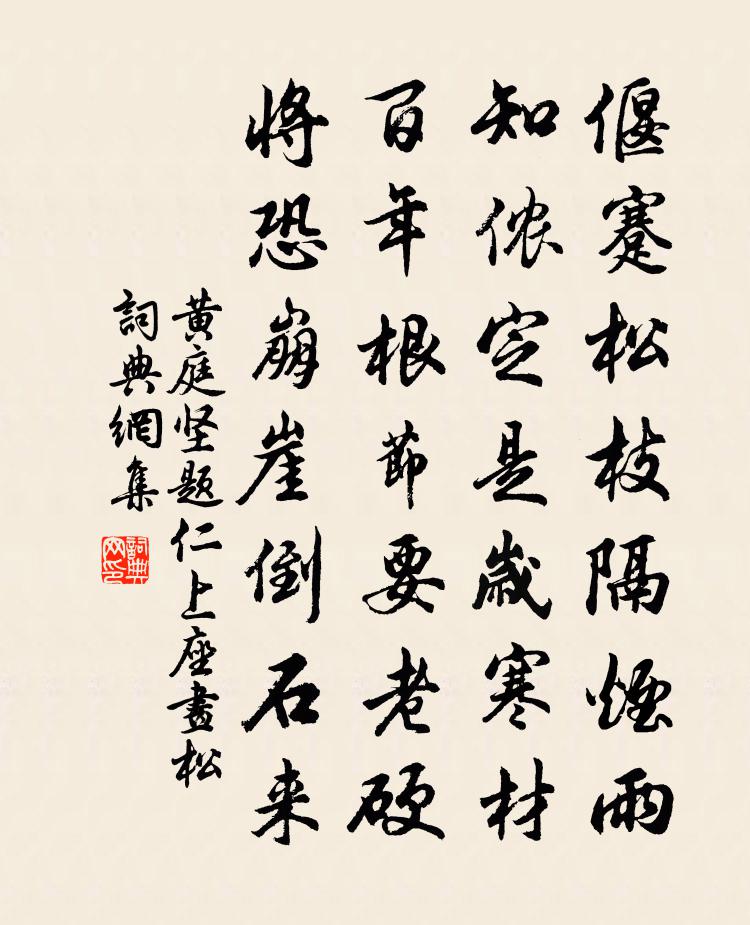 偃蹇松枝隔煙雨
知侬定是歲寒材
百年根節要老硬
将恐崩崖倒石来
黄庭坚题仁上座畫松
詞典網集
詞典
网印